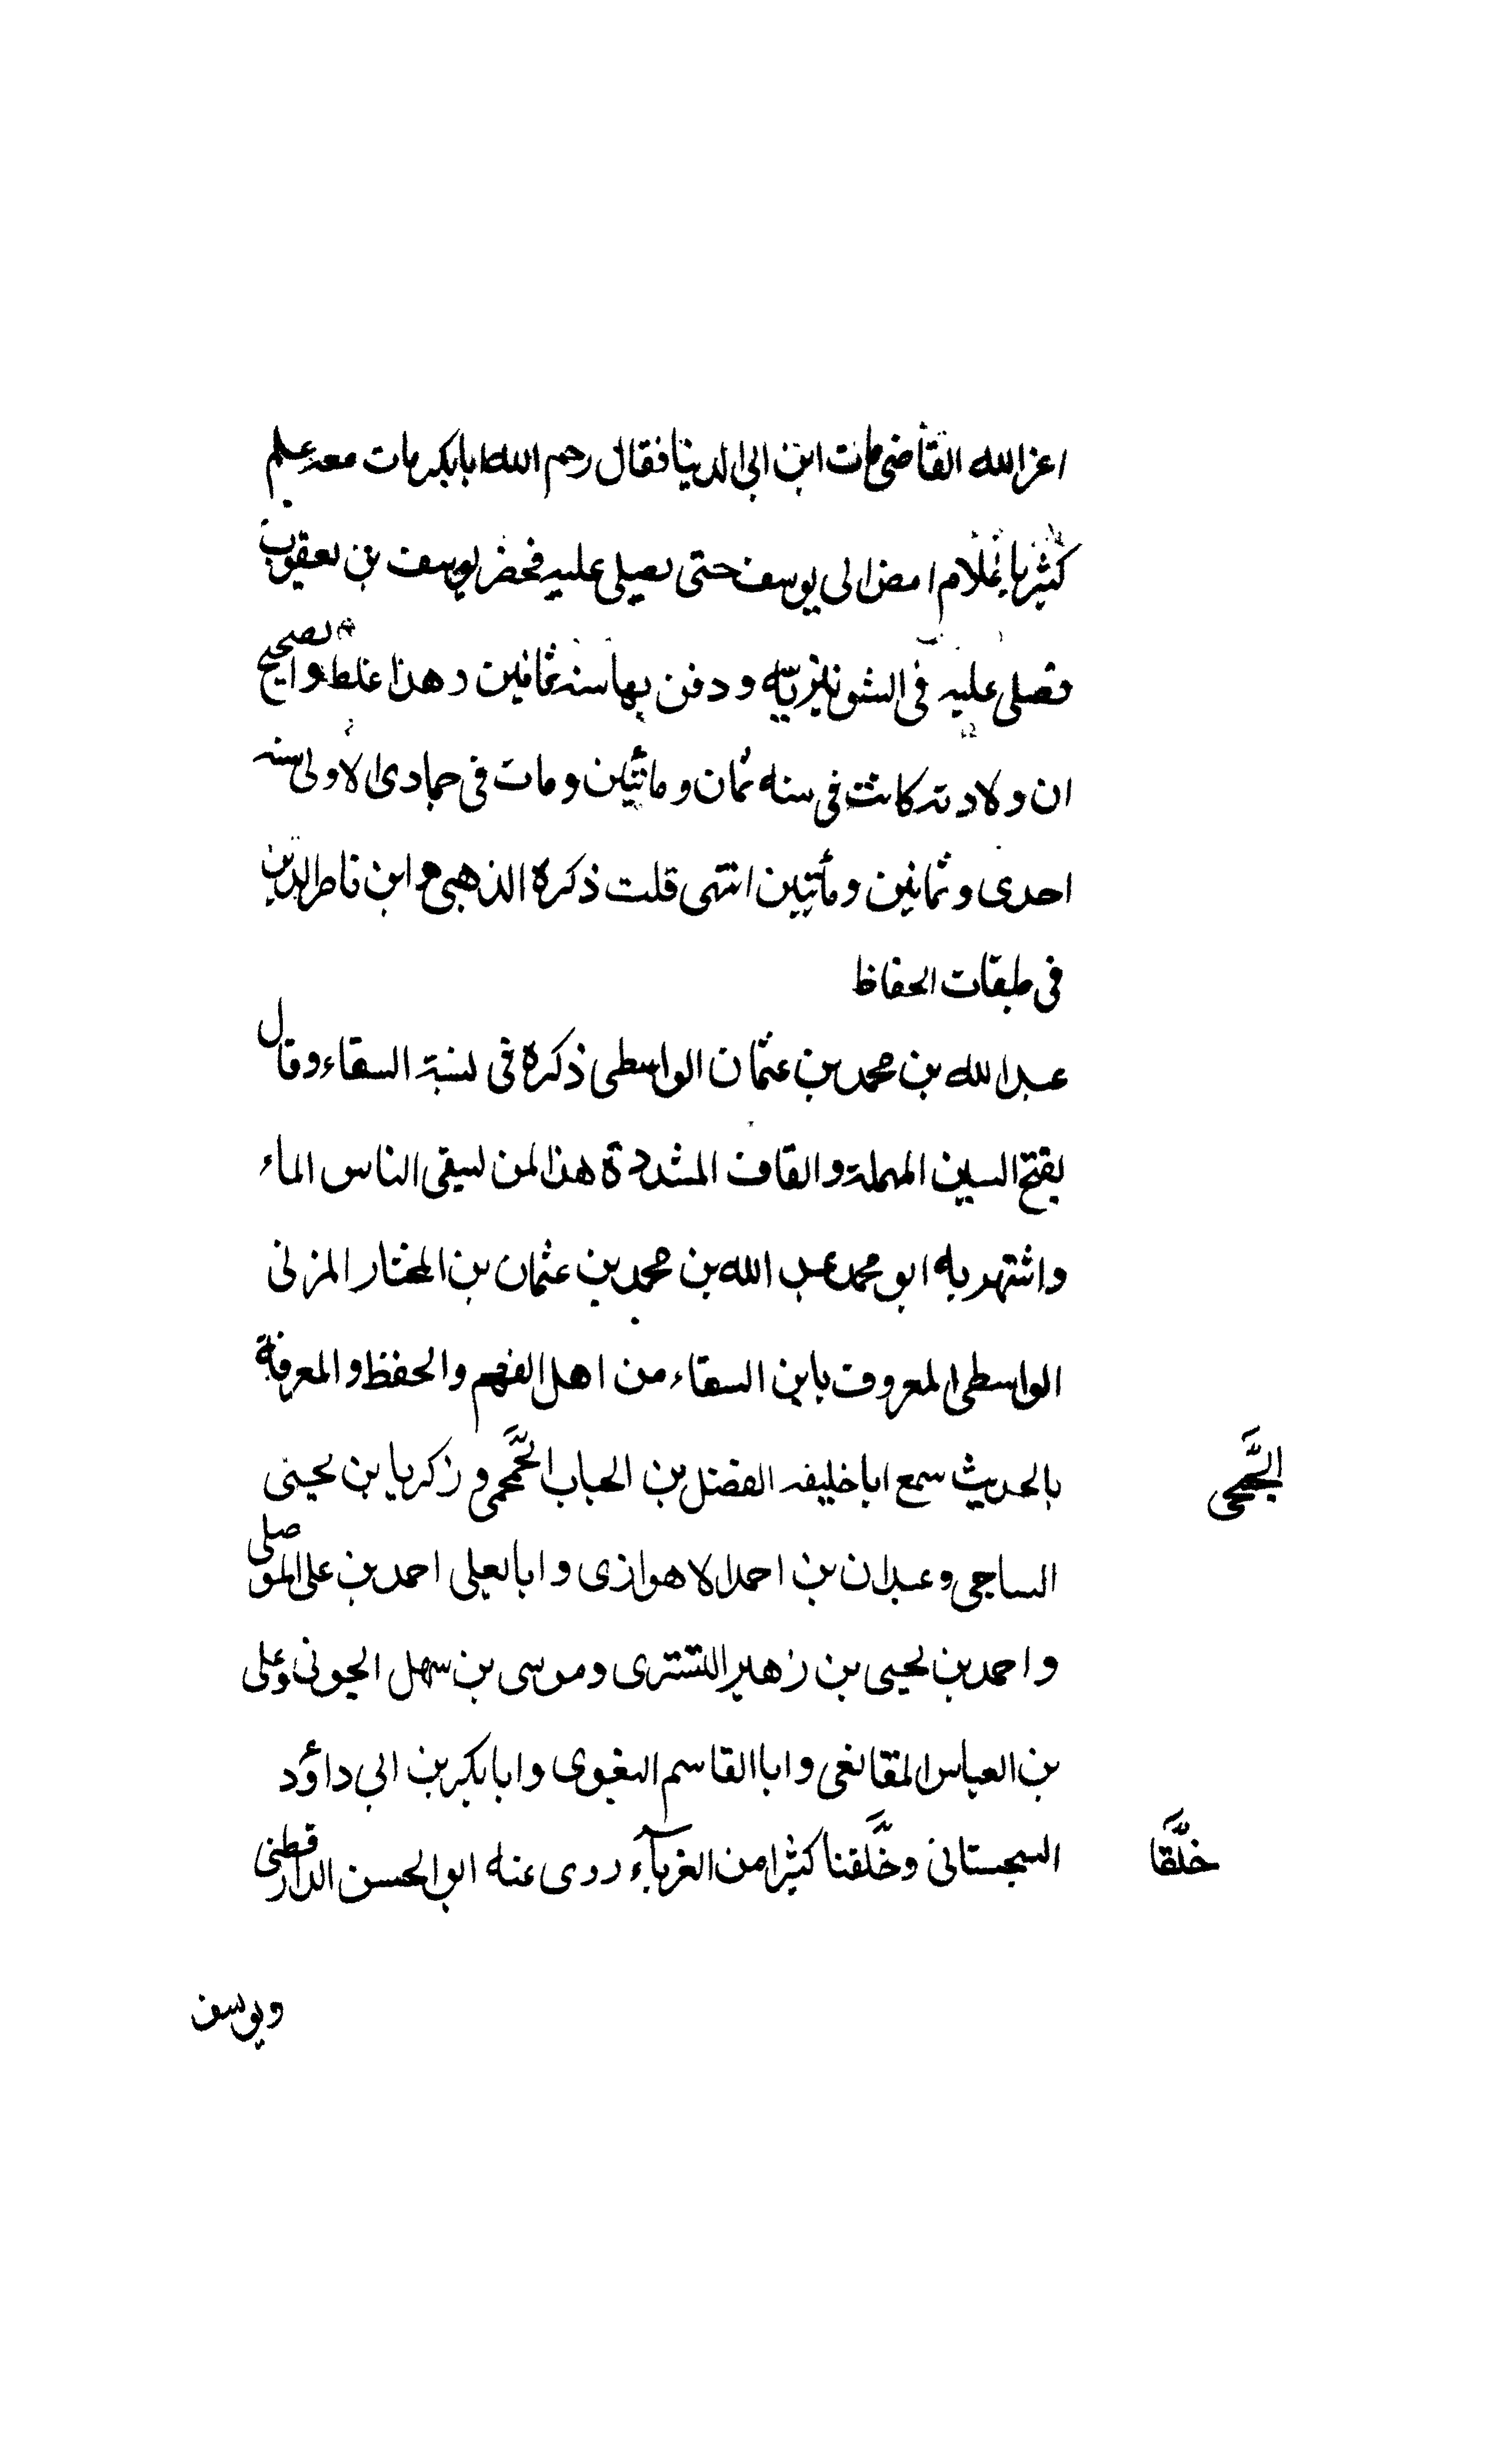 اعز الله القاضى مات ابن ابى الدنيا فقال رحم الله ابا بكر مات معه علم
كثير يا غلام امض الى يوسف حتى يصلى عليه فحضر يوسف بن يعقوب
فصلى عليه فى الشونيزيّه ودفن بها سنه ثمانين وهذا غلط والصحيح
ان ولادته كانت فى سنه ثمان ومائتين ومات فى جمادى الاولى سنه
احدى وثمانين ومأتين انتهى قلت ذكره الذهبى وابن ناصر الدين
فى طبقات الحفاظ
عبد الله بن محمد بن عثمان الواسطى ذكره فى نسبة السقاء وقال
بفتح السين المهملة والقاف المشددة هذا لمن يسقى الناس الماء
واشتهر به ابو محمد عبد الله بن محمد بن عثمان بن المختار المزنى
الواسطى المعروف بابن السقاء من اهل الفهم والحفظ والمعرفة
بالحديث سمع ابا خليفه الفضل بن الحباب الحَّمحمى وزكريا بن يحيى
الجَّمحى
الساجى وعبدان بن احمد الاهوازى وابا يعلى احمد بن على الموصلى
واحمد بن يحيى بن زهير التسترى وموسى بن سهل الجونى وعلى
بن العباس المقانعى وابا القاسم البغوى وابا بكر بن ابى داؤد
السجستانى وخَّلقنا كثيرا من الغربآء روى عنه ابو الحسن الدارقطنى
خلَّقا
ويوسف